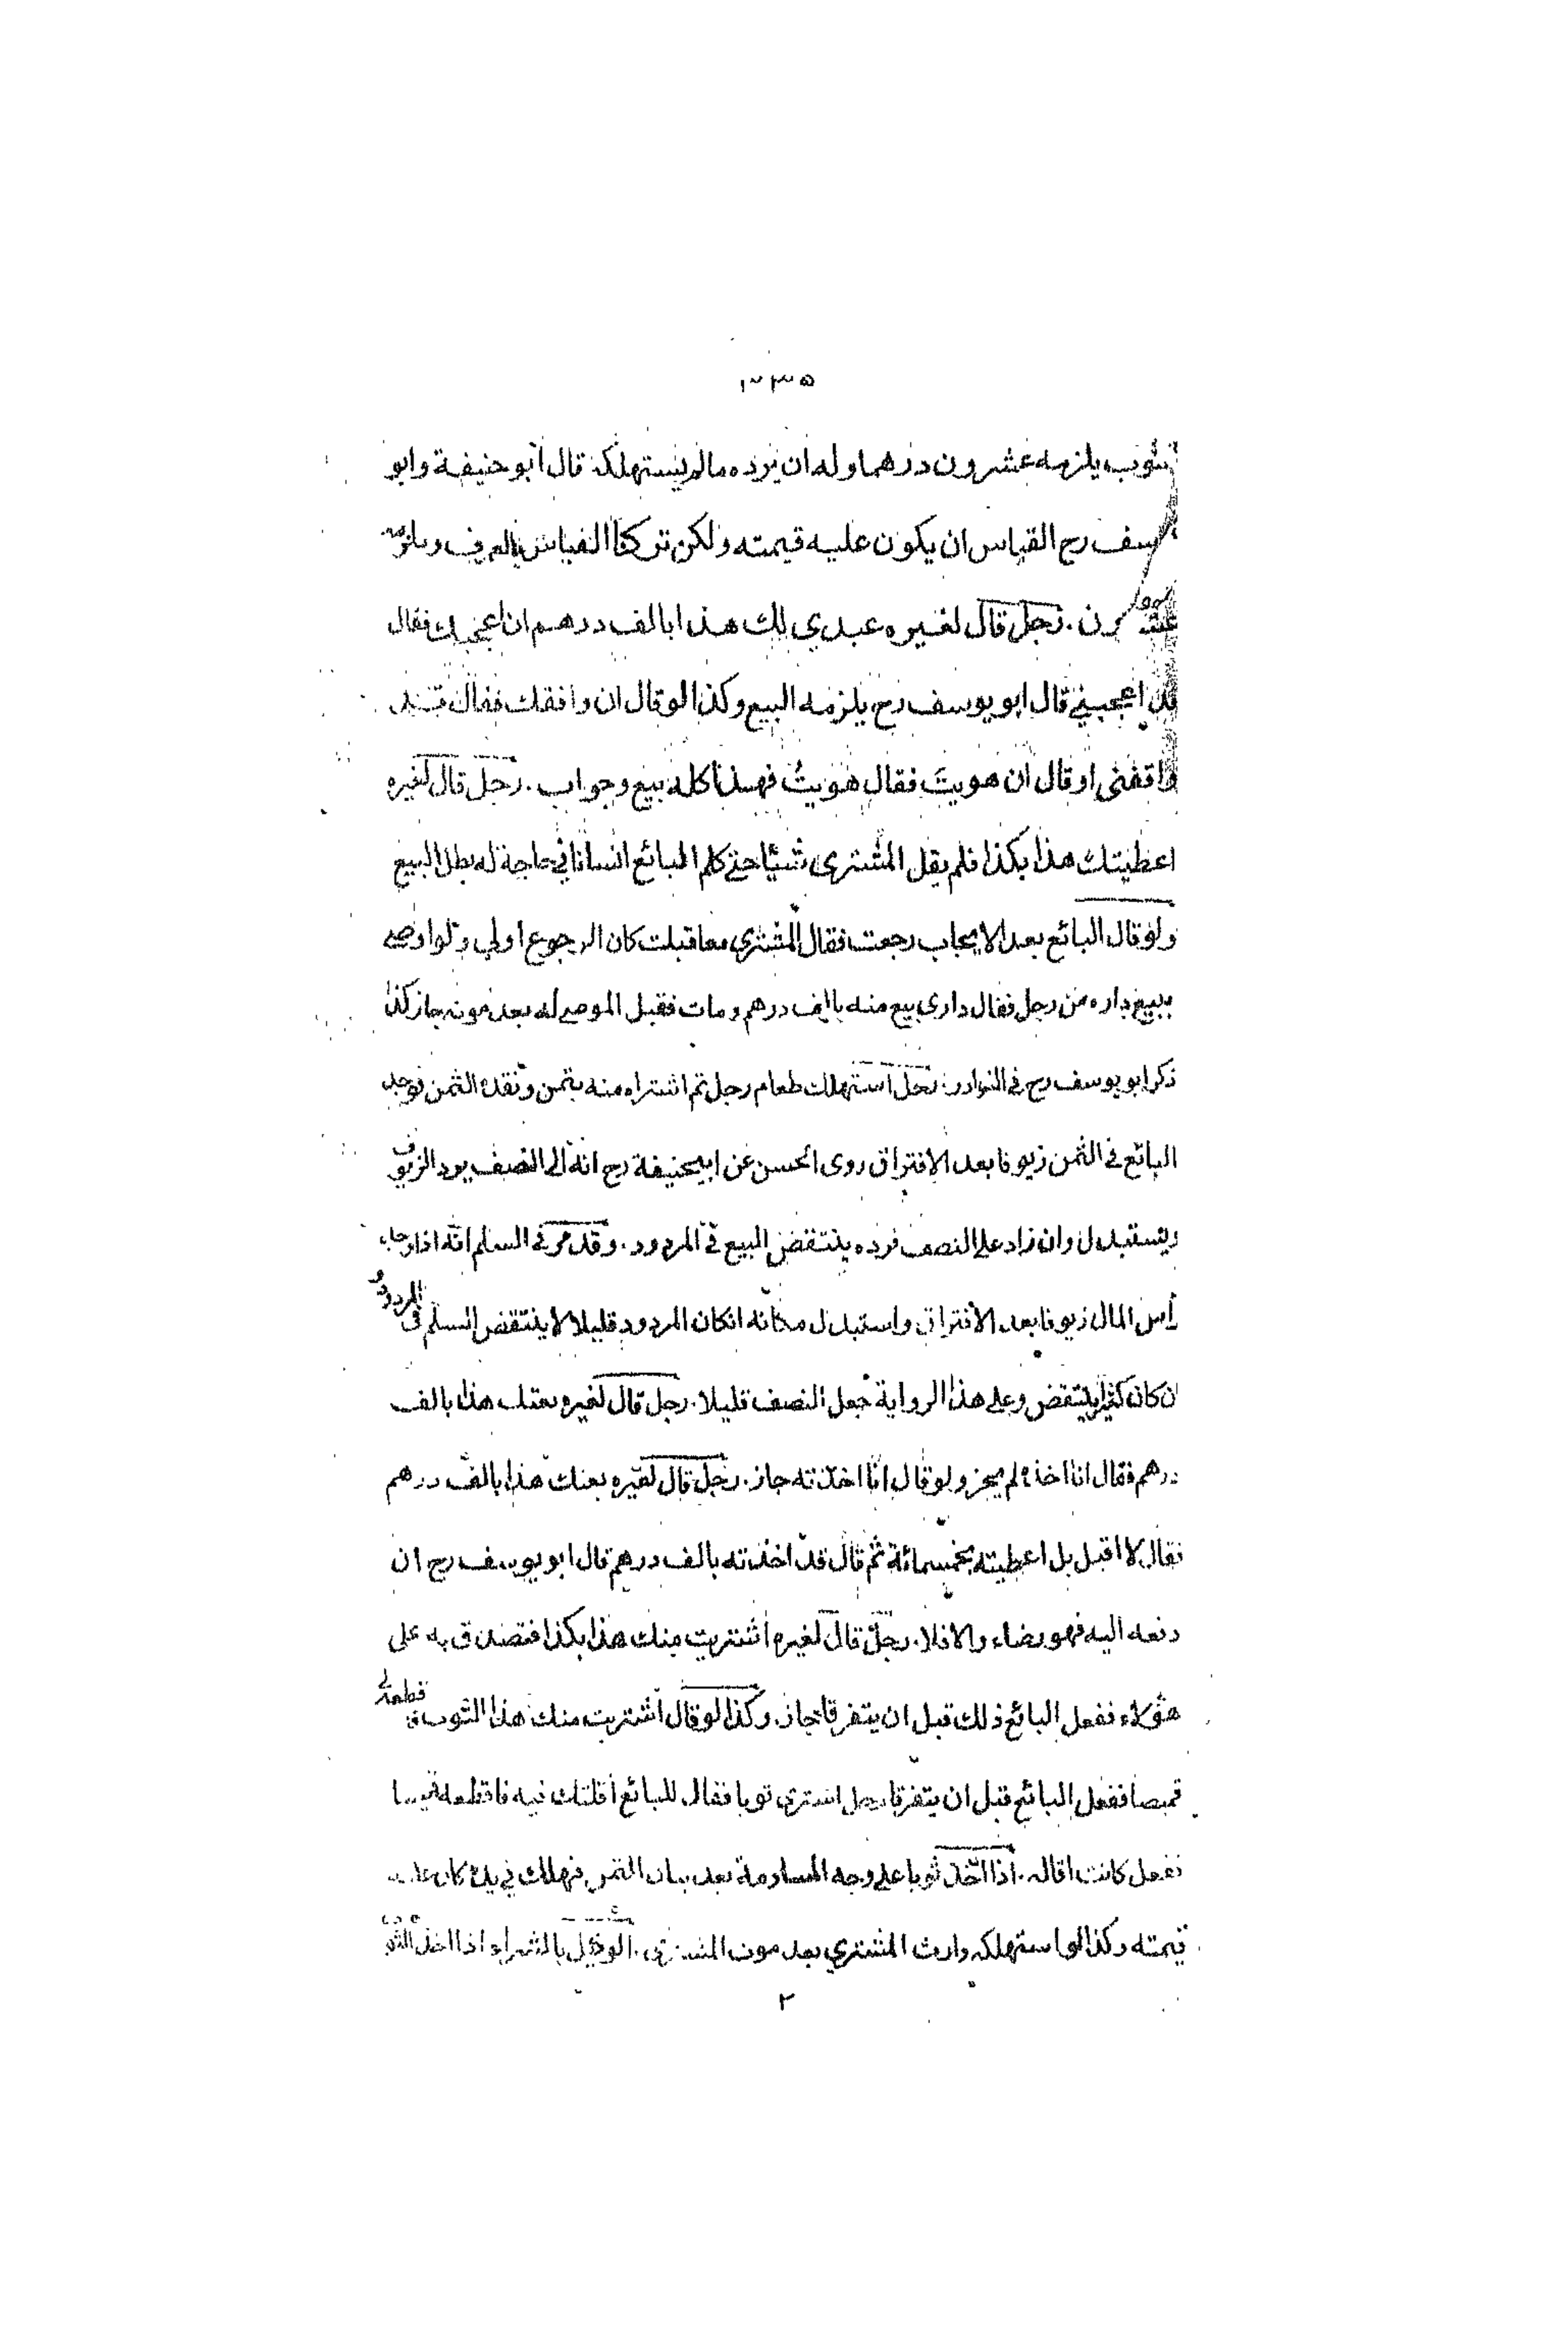 ٣٣٥
الثوب يلزمه عشرون درهما وله ان يرده مالم يستهلكه قال ابو حنيفة وابو
يوسف رح القياس ان يكون عليه قيمته ولكن تركنا القياس بالعرف ويلزمه
عشرون . رجل قال لغيره عبدي لك هذا بالف درهم ان اعجبك فقال
قد اعجبني قال ابو يوسف رح يلزمه البيع وكذا لو قال ان وافقك فقال قد
وافقني او قال ان هويتَ فقال هويتُ فهذا كله بيع وجواب . رجل قال لغيره
اعطيتك هذا بكذا فلم يقل المشتري شيئا حتى كلم البائع انسانا في حاجة له بطل البيع
ولو قال البائع بعد الايجاب رجعت فقال المشتري معا قبلت كان الرجوع اولى ولو اوصى
ببيع داره من رجل فقال داري بيع منه بالف درهم ومات فقبل الموصى له بعد موته جاز كذا
ذكر ابو يوسف رح في النوادر . رجل استهلك طعام رجل ثم اشتراه منه بثمن ونقده الثمن فوجد
البائع في الثمن زيوفا بعد الافتراق روى الحسن عن ابي حنيفة رح انه الى النصف يرد الزيوف
ويستبدل وان زاد على النصف فرده ينتقض البيع في المردود . وقد مر في السلم انه اذا وجد
رأس المال زيوفا بعد الافتراق واستبدل مكانه انكان المردود قليلا لا ينتقض السلم في المردود و
ان كان كثيرا ينتقض وعلى هذا الرواية جعل النصف قليلا . رجل قال لغيره بعتك هذا بالف
درهم فقال انا اخذه لم يجز ولو قال انا اخذته جاز . رجل قال لغيره بعتك هذا بالف درهم
فقال لا اقبل بل اعطيته بخمسمائة ثم قال قد اخذته بالف درهم قال ابو يوسف رح ان
دفعه اليه فهو رضاء والا فلا . رجل قال لغيره اشتريت منك هذا بكذا فتصدق به على
هؤلاء ففعل البائع ذلك قبل ان يتفرقا جاز . وكذا لو قال اشتريت منك هذا الثوب فاقطعه لي
قميصا ففعل البائع قبل ان يتفرقا رجل اشترى ثوبا فقال للبائع اقلتك فيه فاقطعه قميصا
ففعل كانت اقاله . اذا اخذ ثوبا على وجه المساومة بعد بيان الثمن فهلك في يده كان عليه
قيمته وكذا لو استهلكه وارث المشتري بعد موت المشتري . الوكيل بالشراء اذا اخذ الثوب
٢